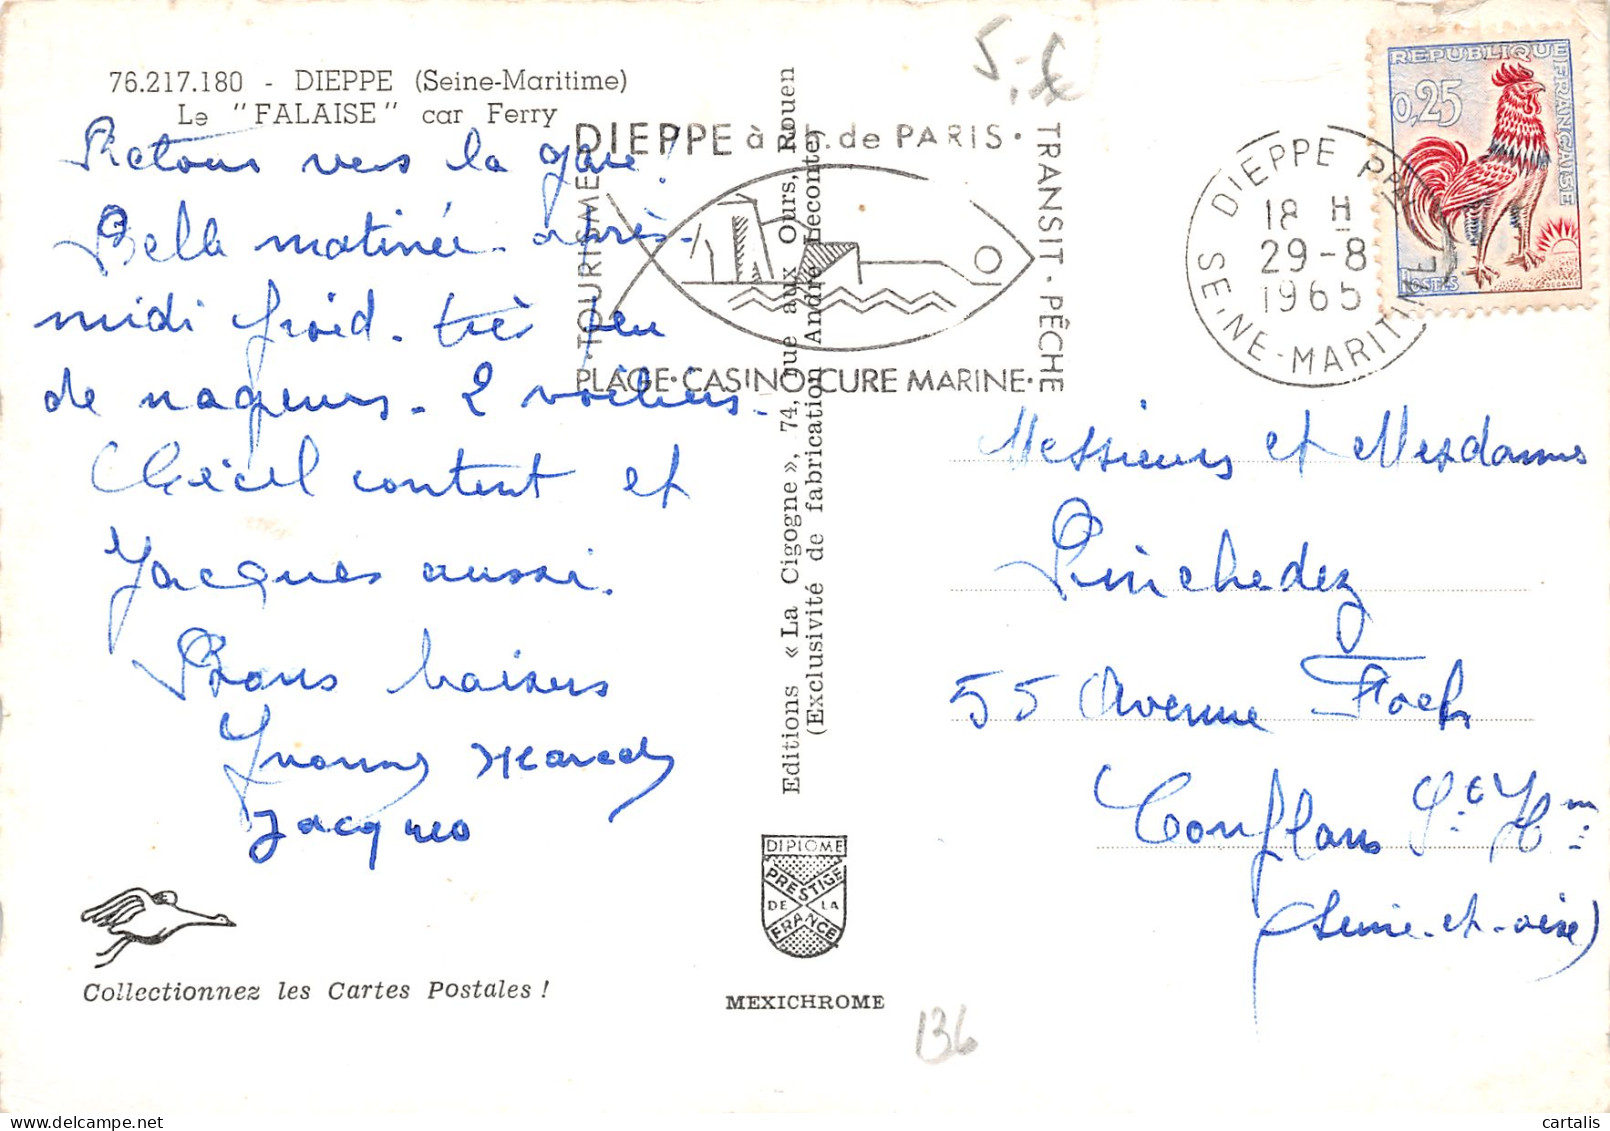 76.217.180 - DIEPPE (Seine-Maritime)
Le "FALAISE" car Ferry
Retour vers la gare!
Belle matinée. après-
midi froid. très peu
de nageurs. 2 voiliers.
content et
Jacques aussi.
Bons baisers
Yvonne Marcel
Jacques
Collectionnez les Cartes Postales !
Editions « La Cigogne », 74, rue aux Ours, Rouen
(Exclusivité de fabrication André Leconte)
DIPLOME
PRESTIGE
DE LA
FRANCE
MEXICHROME
DIEPPE à h. de PARIS.
TOURISME
TRANSIT - PÊCHE
PLAGE·CASINO·CURE MARINE·
DIEPPE PPAL
18 H
29-8
1965
SEINE-MARITIME
REPUBLIQUE FRANÇAISE
0,25
POSTES
Messieurs et Mesdames
Pinchedez
55 Avenue Foch
Conflans Ste Hne
(Seine-et-oise)
136